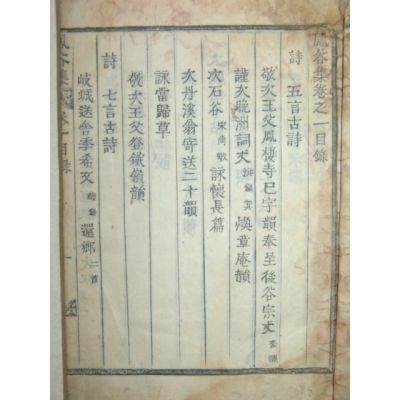 鳳谷集卷之一目錄
詩 五言古詩
敬次王父鳳棲寺巳字韻奉呈後谷宗丈
謹次晩洲詞丈 錫箕 煥章庵韻
次石谷 宋尙敏 詠懷長篇
次丹溪翁寄送二十韻
詠雷歸草
敬次王父登鐵嶺韻
詩 七言古詩
岐城送舍季希文 還鄉 二首
鳳谷集 卷一 目錄 一